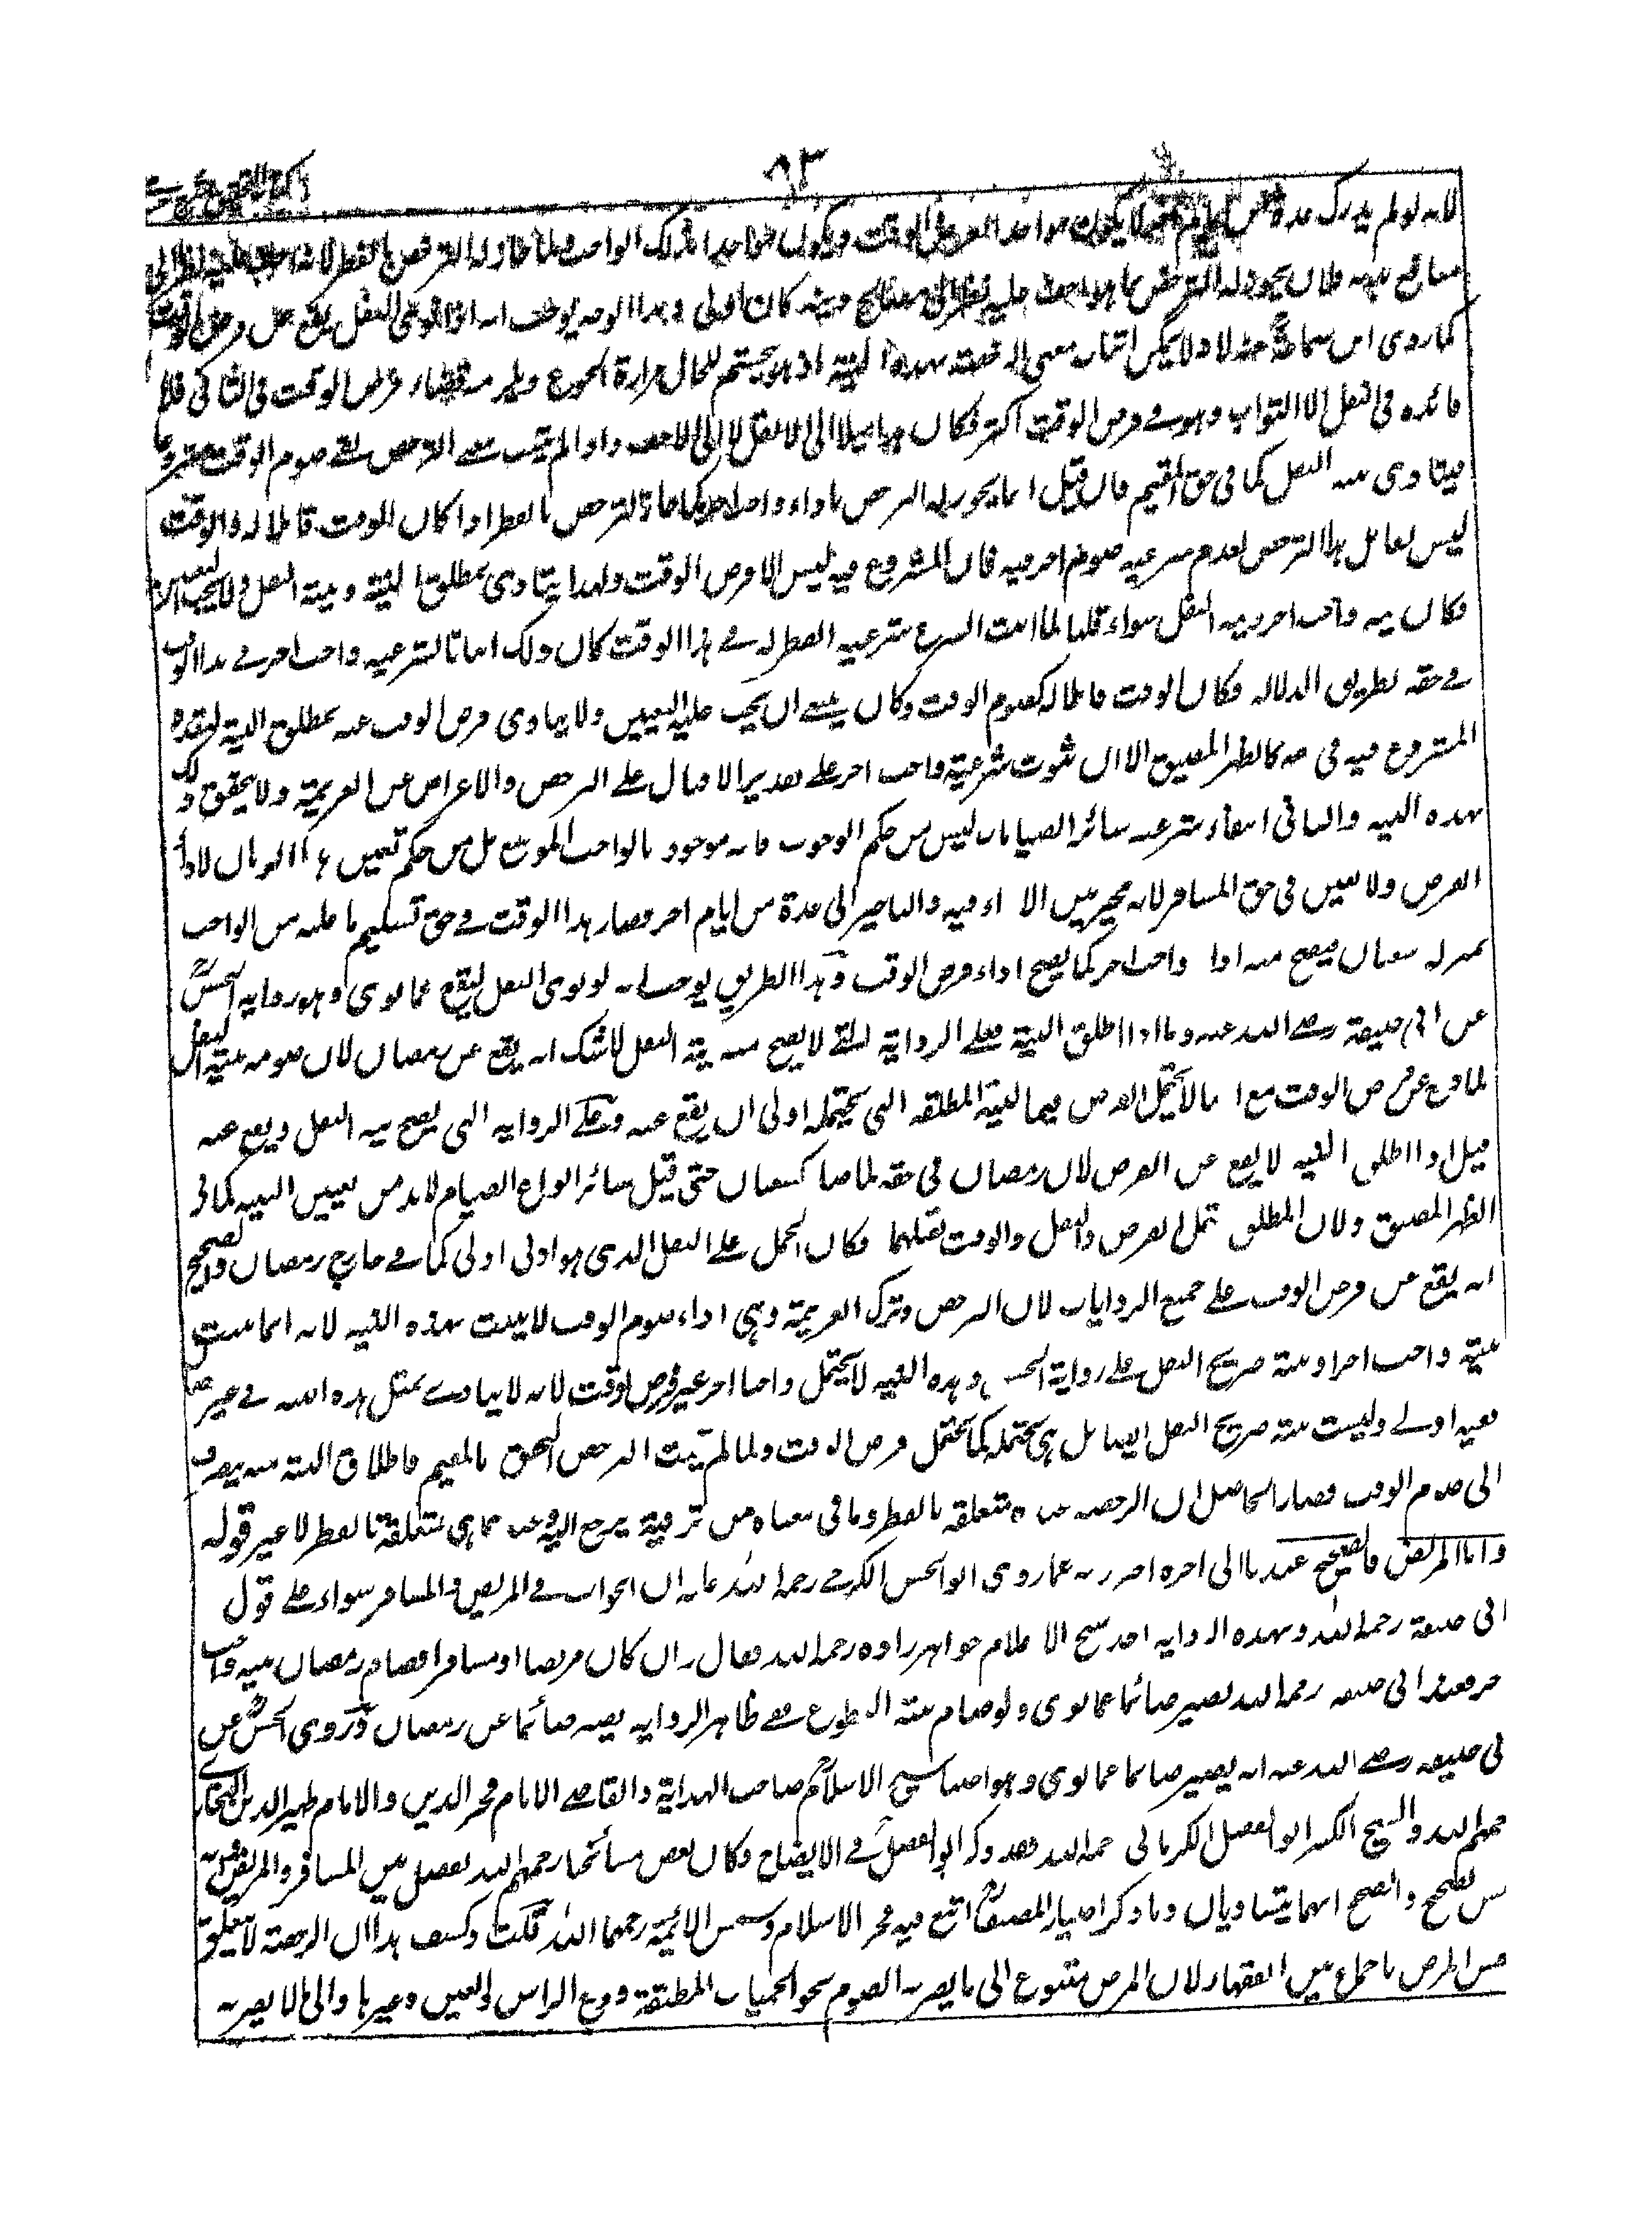 ٦٣
لانه لو لم يدرك عدة من ايام اخر لا يكون مواخذا بفرض الوقت ويكون مواخذا بذلك الواجب ولما جاز له الترخص بالفطر لانه اخف عليه نظرا الى
منافع بدنه فلان يجوز له الترخص بما هو اخف عليه نظرا الى مصالح دينه كان اولى وهذا الوجه يوجب انه اذا نوى النفل يقع عن فرض الوقت
كما روى ابن سماعة عنه لانه لا يمكن اثبات معنى الرخصة بهذه النية اذ هو يتجشم للحال مرارة الجوع ويلزمه قضاء فرض الوقت في الثاني فلا
فائدة في النفل الا الثواب وهو في فرض الوقت اكثر فكان هذا ميلا الى الاثقل لا الى الاخف واذا لم يثبت معنى الترخص بقى صوم الوقت مشروعا
فيتادى بنية النفل كما في حق المقيم فان قيل انما يجوز له الترخص باداء واجب اخر كما جاز الترخص بالفطر اذا كان الوقت قابلا له والوقت
ليس بقابل لهذا الترخص لعدم شرعية صوم اخر فيه فان المشروع فيه ليس الا فرض الوقت ولهذا يتادى بمطلق النية ونية النفل ولا يجب التعيين
فكان نية واجب اخر ونية النفل سواء قلنا لما اثبت الشرع شرعية الفطر له في هذا الوقت كان ذلك اثباتا لشرعية واجب اخر في هذا الوقت
في حقه بطريق الدلالة فكان الوقت قابلا له كصوم الوقت وكان ينبغى ان يجب عليه التعيين ولا يتادى فرض الوقت عنه بمطلق النية لتعدد
المشروع فيه في حقه كالظهر المضيق الا ان ثبوت شرعية واجب اخر على تقدير الاقبال على الترخص والاعراض عن العزيمة ولا يتحقق ذلك
بهذه النية والثانى انتفاء شرعية سائر الصيامات ليس من حكم الوجوب فانه موجود بالواجب الموسع بل من حكم تعيين هذا الزمان لاداء
الفرض ولا تعيين في حق المسافر لانه مخير بين الاداء فيه والتاخير الى عدة من ايام اخر فصار هذا الوقت في حق تسليم ما عليه من الواجب
بمنزلة شعبان فيصح منه اداء واجب اخر كما يصح اداء فرض الوقت وهذا الطريق يوجب انه لو نوى النفل ليقع عما نوى وهو رواية الحسن
عن ابى حنيفة رضى الله عنه واما اذا اطلق النية فعلى الرواية التى لا يصح منه نية النفل لا شك انه يقع عن رمضان لان صومه بنية النفل
لما وقع عن فرض الوقت مع انها لا تحتمل الفرض فبالنية المطلقة التى تحتمله اولى ان يقع عنه وعلى الرواية التى يصح نية النفل ويقع عنه
قيل اذا اطلق النية لا يقع عن الفرض لان رمضان في حقه لما صار كشعبان حتى قبل سائر انواع الصيام لا بد من تعيين النية كما في
الظهر المضيق ولان المطلق يحتمل الفرض والنفل والوقت يقبلهما فكان الحمل على النفل الذى هو ادنى اولى كما في خارج رمضان والصحيح
انه يقع عن فرض الوقت على جميع الروايات لان الترخص وترك العزيمة وهى اداء صوم الوقت لا يثبت بهذه النية لانه انما يثبت
بنية واجب اخر او بنية صريح النفل على رواية الحسن وهذه النية لا تحتمل واجبا اخر غير فرض الوقت لانه لا يتادى بمثل هذه النية في غير رمضان
ففيه اولى وليست بنية صريح النفل ايضا بل هى تحتمله كما تحتمل فرض الوقت ولما لم يثبت الترخص التحق بالمقيم فاطلاق النية منه ينصرف
الى صوم الوقت فصار الحاصل ان الرخصة عنده متعلقة بالفطر وما في معناه من ترفيه يرجع اليه وعندهما هى متعلقة بالفطر لا غير قوله
واما المريض فالصحيح عندنا الى اخره احترز به عما روى ابو الحسن الكرخى رحمه الله فانه ان الجواب في المريض والمسافر سواء على قول
ابى حنيفة رحمه الله وبهذه الرواية اخذ شيخ الاسلام خواهر زاده رحمه الله فقال ان كان مريضا او مسافرا فصام رمضان بنية واجب
اخر فعند ابى حنيفة رحمه الله يصير صائما عما نوى ولو صام بنية التطوع ففى ظاهر الرواية يصير صائما عن رمضان وروى الحسن عن
ابى حنيفة رضى الله عنه انه يصير صائما عما نوى وهو اختيار شيخ الاسلام صاحب الهداية والقاضى الامام فخر الدين والامام ظهير الدين البخارى
رحمهم الله والشيخ الكبير ابو الفضل الكرمانى رحمه الله فقد ذكر ابو الفضل في الايضاح وكان بعض مشائخنا رحمهم الله يفصل بين المسافر والمريض وانه
ليس بصحيح والصحيح انهما يتساويان وما ذكر اختيار المصنف اتبع فيه فخر الاسلام وشمس الائمة رحمهما الله فكذلك وكشف هذا ان الرخصة لا تتعلق
بنفس المرض باجماع بين الفقهاء لان المرض متنوع الى ما يضر به الصوم نحو الحميات المطبقة ووجع الراس والعين وغيرها والى ما لا يضر به